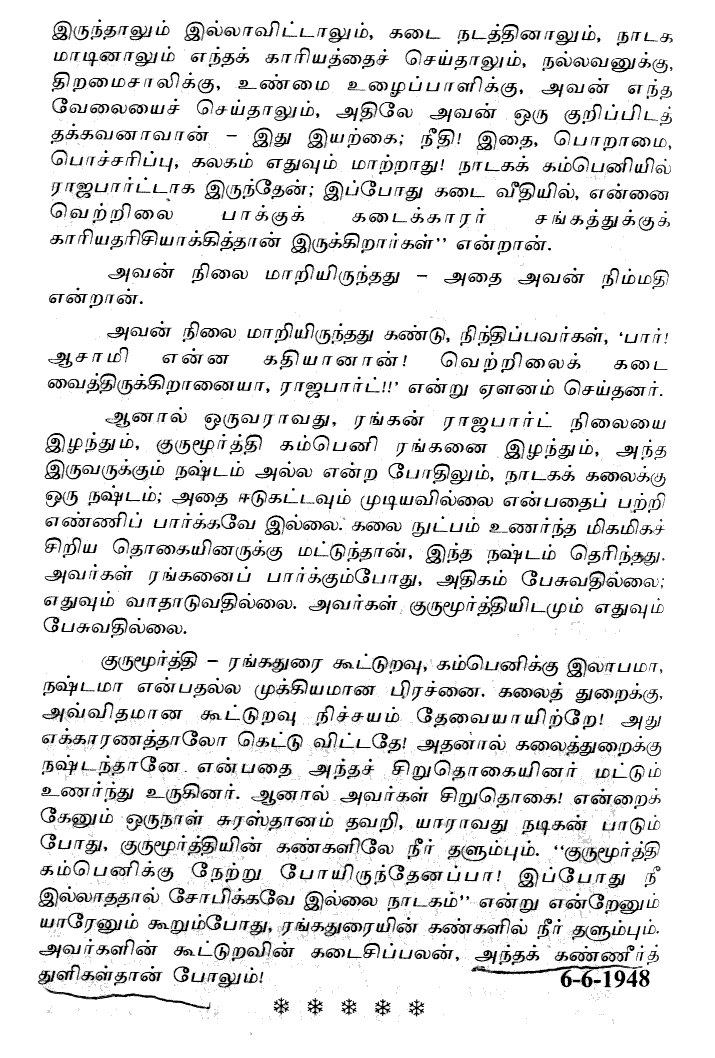 இருந்தாலும் இல்லாவிட்டாலும், கடை நடத்தினாலும், நாடக
மாடினாலும் எந்தக் காரியத்தைச் செய்தாலும், நல்லவனுக்கு,
திறமைசாலிக்கு, உண்மை உழைப்பாளிக்கு, அவன் எந்த
வேலையைச் செய்தாலும், அதிலே அவன் ஒரு குறிப்பிடத்
தக்கவனாவான் – இது இயற்கை; நீதி! இதை, பொறாமை,
பொச்சரிப்பு, கலகம் எதுவும் மாற்றாது! நாடகக் கம்பெனியில்
ராஜபார்ட்டாக இருந்தேன்; இப்போது கடை வீதியில், என்னை
வெற்றிலை பாக்குக் கடைக்காரர் சங்கத்துக்குக்
காரியதரிசியாக்கித்தான் இருக்கிறார்கள்" என்றான்.
அவன் நிலை மாறியிருந்தது – அதை அவன் நிம்மதி
என்றான்.
அவன் நிலை மாறியிருந்தது கண்டு, நிந்திப்பவர்கள், 'பார்!
ஆசாமி என்ன கதியானான்! வெற்றிலைக் கடை
வைத்திருக்கிறானையா, ராஜபார்ட்!!' என்று ஏளனம் செய்தனர்.
ஆனால் ஒருவராவது, ரங்கன் ராஜபார்ட் நிலையை
இழந்தும், குருமூர்த்தி கம்பெனி ரங்கனை இழந்தும், அந்த
இருவருக்கும் நஷ்டம் அல்ல என்ற போதிலும், நாடகக் கலைக்கு
ஒரு நஷ்டம்; அதை ஈடுகட்டவும் முடியவில்லை என்பதைப் பற்றி
எண்ணிப் பார்க்கவே இல்லை. கலை நுட்பம் உணர்ந்த மிகமிகச்
சிறிய தொகையினருக்கு மட்டுந்தான், இந்த நஷ்டம் தெரிந்தது.
அவர்கள் ரங்கனைப் பார்க்கும்போது, அதிகம் பேசுவதில்லை;
எதுவும் வாதாடுவதில்லை. அவர்கள் குருமூர்த்தியிடமும் எதுவும்
பேசுவதில்லை.
குருமூர்த்தி – ரங்கதுரை கூட்டுறவு, கம்பெனிக்கு இலாபமா,
நஷ்டமா என்பதல்ல முக்கியமான பிரச்னை. கலைத் துறைக்கு,
அவ்விதமான கூட்டுறவு நிச்சயம் தேவையாயிற்றே! அது
எக்காரணத்தாலோ கெட்டு விட்டதே! அதனால் கலைத்துறைக்கு
நஷ்டந்தானே என்பதை அந்தச் சிறுதொகையினர் மட்டும்
உணர்ந்து உருகினர். ஆனால் அவர்கள் சிறுதொகை! என்றைக்
கேனும் ஒருநாள் சுரஸ்தானம் தவறி, யாராவது நடிகன் பாடும்
போது, குருமூர்த்தியின் கண்களிலே நீர் தளும்பும். "குருமூர்த்தி
கம்பெனிக்கு நேற்று போயிருந்தேனப்பா! இப்போது நீ
இல்லாததால் சோபிக்கவே இல்லை நாடகம்" என்று என்றேனும்
யாரேனும் கூறும்போது, ரங்கதுரையின் கண்களில் நீர் தளும்பும்.
அவர்களின் கூட்டுறவின் கடைசிப்பலன், அந்தக் கண்ணீர்த்
துளிகள்தான் போலும்! 6-6-1948